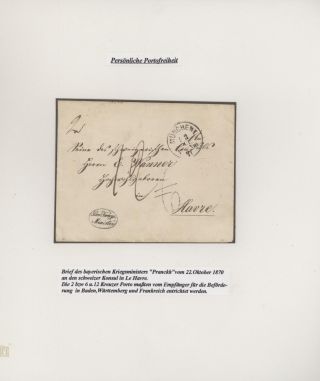 Persönliche Portofreiheit
MÜNCHEN
An
Seine des schweizerischen Consuls
Herrn E. Wanner
Hochwohlgeboren
Havre.
Brief des bayerischen Kriegsministers "Pranckh" vom 22.Oktober 1870
an den schweizer Konsul in Le Havre.
Die 2 bzw 6 u.12 Kreuzer Porto mußten vom Empfänger für die Beförde-
rung in Baden,Württemberg und Frankreich entrichtet werden.